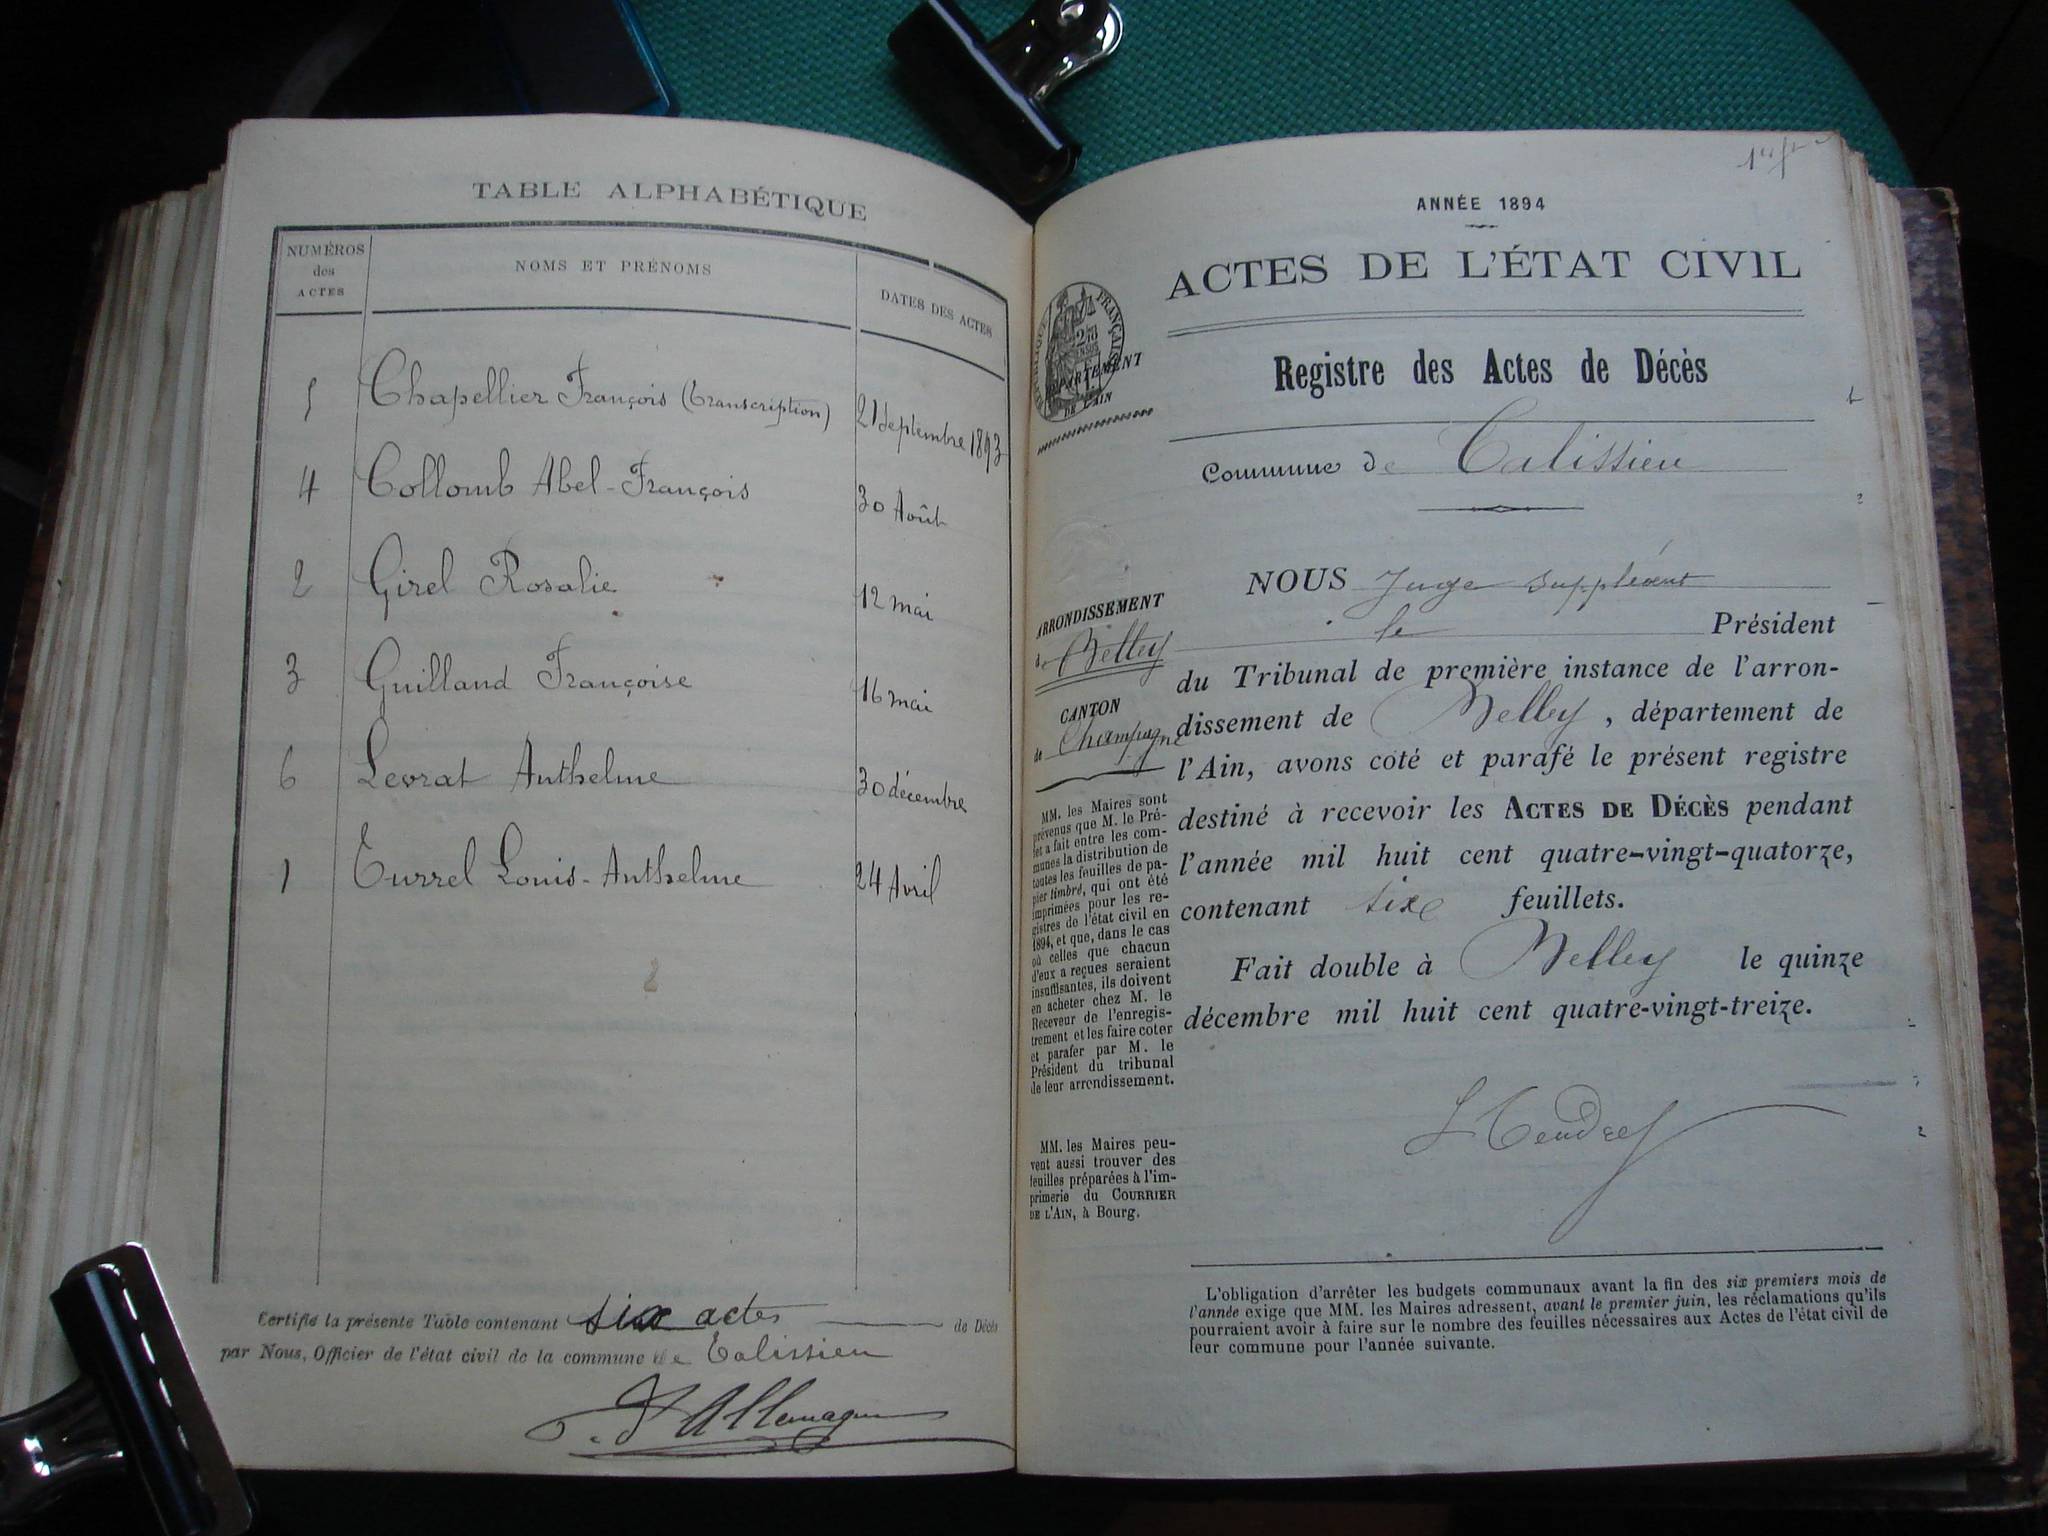 TABLE ALPHABÉTIQUE
NUMÉROS
des
ACTES
NOMS ET PRÉNOMS
DATES DES ACTES
5 Chapellier François (Transcription) 21 septembre 1893
4 Collomb Abel-François 30 Août
2 Girel Rosalie 12 mai
3 Guilland Françoise 16 mai
6 Levrat Anthelme 30 décembre
1 Turrel Louis-Anthelme 24 Avril
Certifié la présente Table contenant six actes de Décès
par Nous, Officier de l'état civil de la commune de Talissieu
D'Allemagne
ANNÉE 1894
ACTES DE L'ÉTAT CIVIL
RÉPUBLIQUE FRANÇAISE
DÉPARTEMENT
DE L'AIN
Registre des Actes de Décès
Commune de Talissieu
NOUS Juge suppléant
le Président
du Tribunal de première instance de l'arron-
dissement de Belley, département de
l'Ain, avons coté et parafé le présent registre
destiné à recevoir les ACTES DE DÉCÈS pendant
l'année mil huit cent quatre-vingt-quatorze,
contenant six feuillets.
Fait double à Belley le quinze
décembre mil huit cent quatre-vingt-treize.
ARRONDISSEMENT
de Belley
CANTON
de Champagne
MM. les Maires sont
prévenus que M. le Pré-
fet a fait entre les com-
munes la distribution de
toutes les feuilles de pa-
pier timbré, qui ont été
imprimées pour les re-
gistres de l'état civil en
1894, et que, dans le cas
où celles que chacun
d'eux a reçues seraient
insuffisantes, ils doivent
en acheter chez M. le
Receveur de l'enregis-
trement et les faire coter
et parafer par M. le
Président du tribunal
de leur arrondissement.
MM. les Maires peu-
vent aussi trouver des
feuilles préparées à l'im-
primerie du COURRIER
DE L'AIN, à Bourg.
L'obligation d'arrêter les budgets communaux avant la fin des six premiers mois de
l'année exige que MM. les Maires adressent, avant le premier juin, les réclamations qu'ils
pourraient avoir à faire sur le nombre des feuilles nécessaires aux Actes de l'état civil de
leur commune pour l'année suivante.